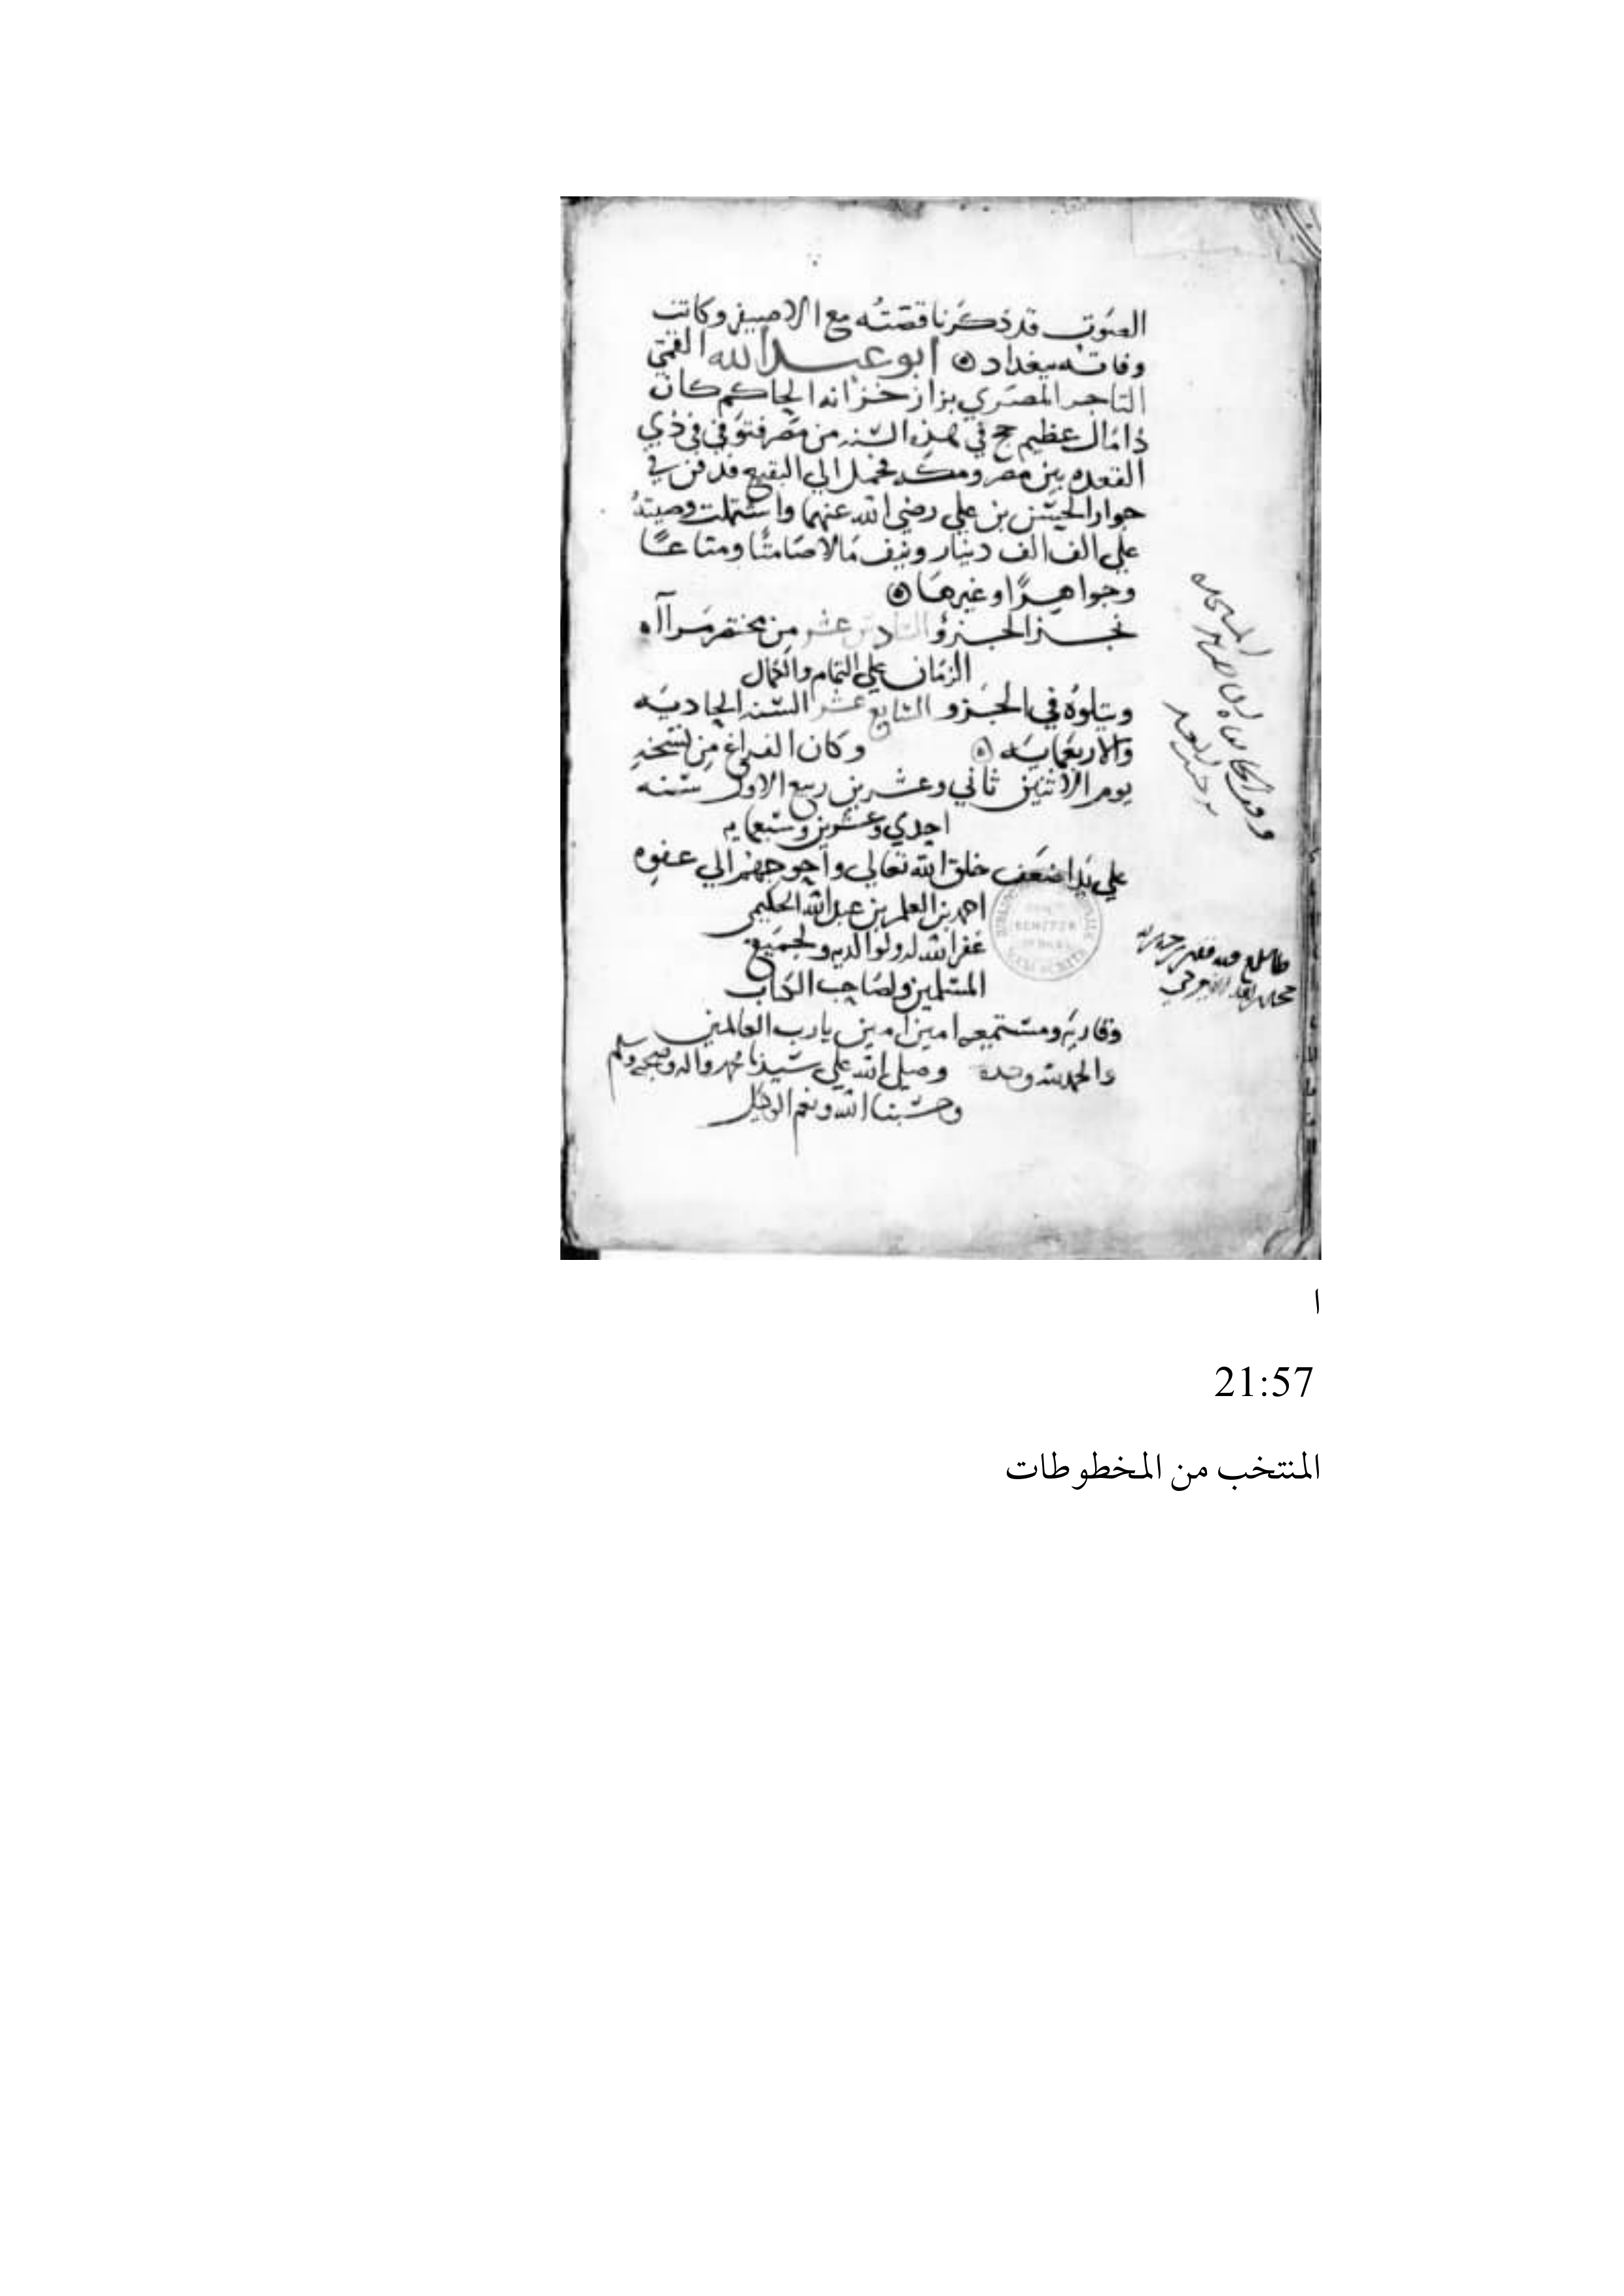 الصوت قد ذكرنا قصته مع الاصيفر وكانت
وفاته ببغداد ابو عبد الله القمي
التاجر المصري بزاز خزانه الحاكم كان
ذا مال عظيم حج في هذه السنه من مصر فتوفي في ذي
القعده بين مصر ومكه فحمل الي البقيع فدفن في
جوار الحسن بن علي رضي الله عنهما واشتملت وصيته
علي الف الف دينار ونيف مالا صامتا ومتاعا
وجواهرا وغيرها
نجز الجزؤ السادس عشر من مختصر مرآاه
الزمان علي التمام والكمال
ويتلوه في الجزو السابع عشر السنه الحاديه
والاربعمايه وكان الفراغ من نسخه
يوم الاثنين ثاني وعشرين ربيع الاول سنه
احدي وعشرين وسبعمايه
علي يد اضعف خلق الله تعالي واحوجهم الي عفوه
احمد بن العلم بن عبد الله الحكيمي
غفر الله له ولوالديه ولجميع
المسلمين ولصاحب الكتاب
وقاريه ومستمعه امين امين يا رب العالمين
والحمد لله وحده وصلي الله علي سيدنا محمد واله وصحبه وسلم
وحسبنا الله ونعم الوكيل
طالع فيه فقير رحمة ربه
ا
21:57
المنتخب من المخطوطات